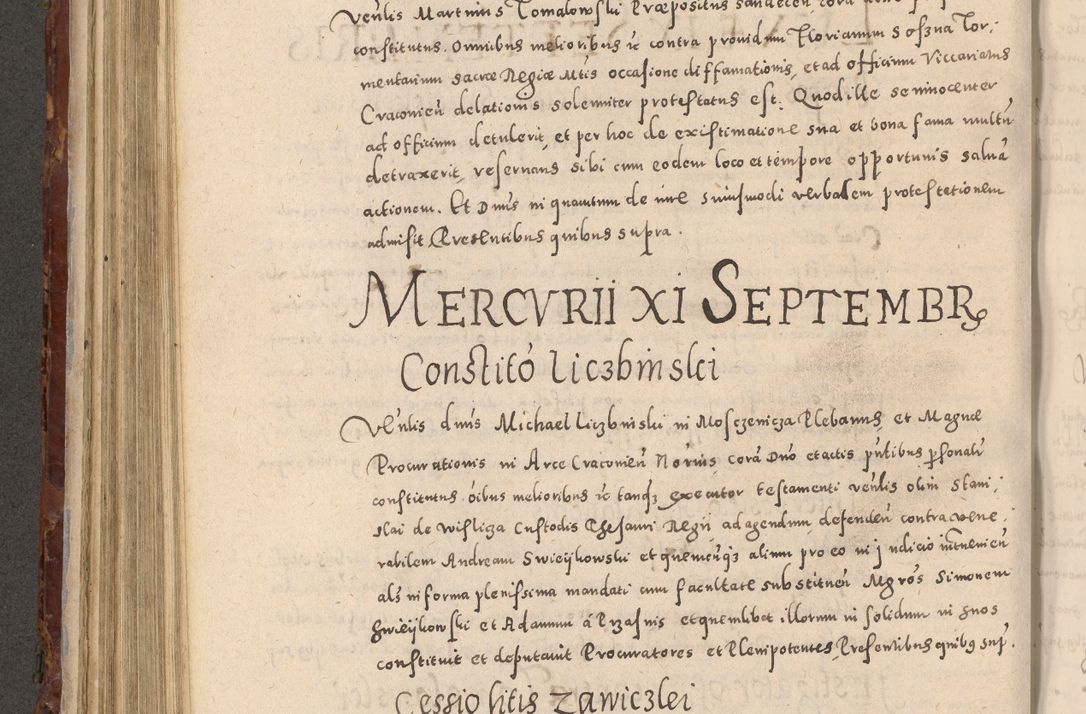 Venlis Martinus Tomalowski Præpositus Sandecen cora
constitutus. Omnibus melioribus ic contra providum Florianum Soszna Tor:
mentarium sacræ Regiæ Mtis occasione diffamationis, et ad officium Viccariatus
Cracovien delationis solemniter protestatus est. Quod ille se innocenter
ad officium detulerit, et per hoc de existimatione sua et bona fama multu
detraxerit, reservans sibi cum eodem loco et tempore opportunis salva
actionem. Et Dnus in quantum de iure huiusmodi verbalem protestationem
admisit Presentibus quibus supra.
MERCVRII XI SEPTEMBR
Constito Liczbinski
Venlis dnus Michael Liczbinski in Mosczenicza Plebanus, et Magnæ
Procurationis in Arce Cracovien Notrius cora Dno et actis pntibus psonalr
constitutus oibus melioribus ic tanqz executor testamenti venlis olim Stani:
slai de Wisliza Custodis Thesauri Regii ad agendum defenden contra vene:
rabilem Andream Swieijkowski et quemcuqz alium pro eo in judicio intervenien
als in forma plenissima mandati cum facultate substituen Mgros Simonem
Swieijkowski et Adamum a Przasnis et quemlibet illorum in solidum in suos
constituit et deputavit Procuratores et Plenipotentes, Presentibus quibq sup.
Cessio litis Zawiczlei